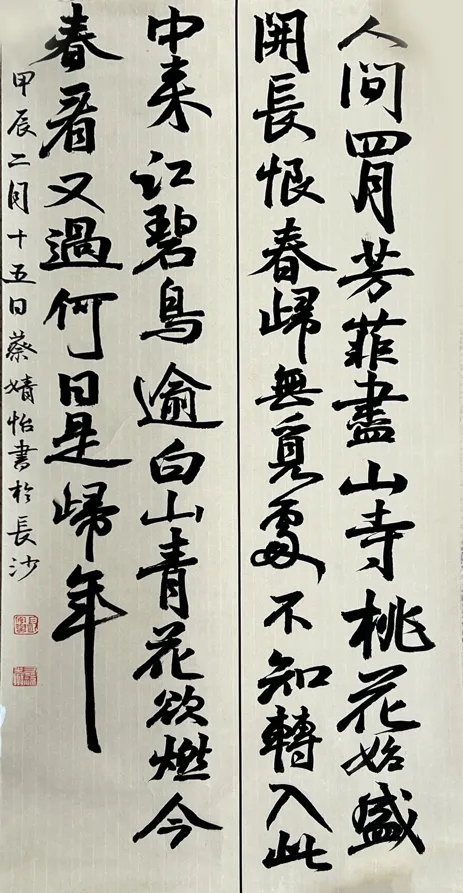 人間四月芳菲盡山寺桃花始盛
開長恨春歸無覓處不知轉入此
中来江碧鳥逾白山青花欲燃今
春看又過何日是歸年
甲辰二月十五日蔡婧怡書於長沙